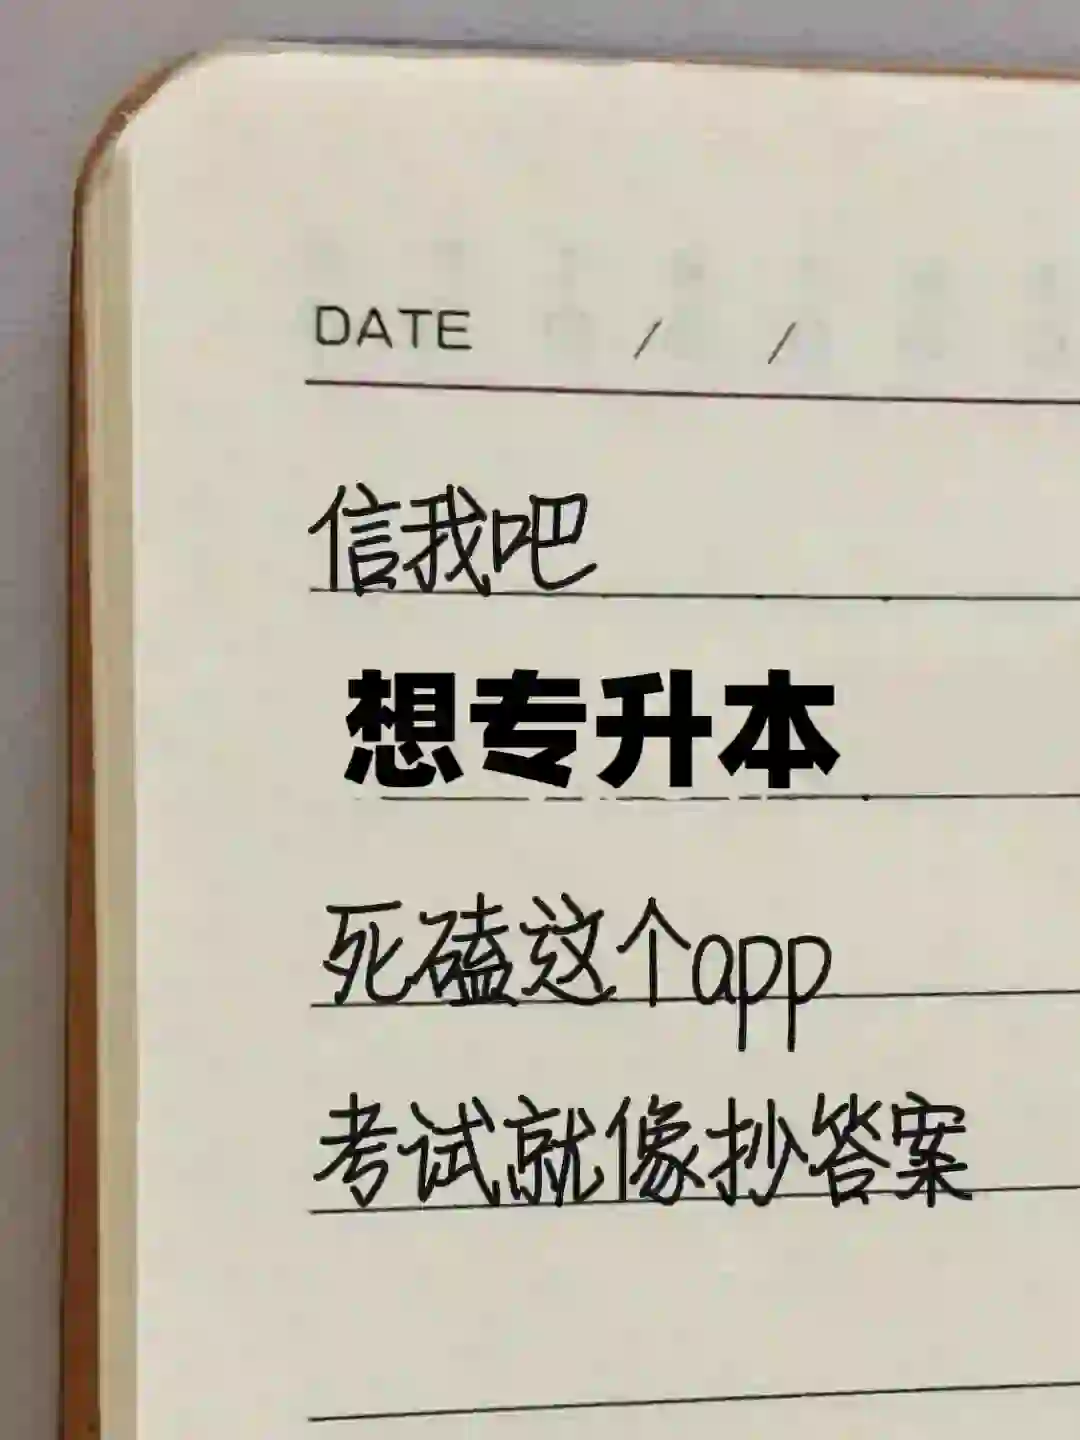 DATE / /
信我吧
想专升本
死磕这个app
考试就像抄答案